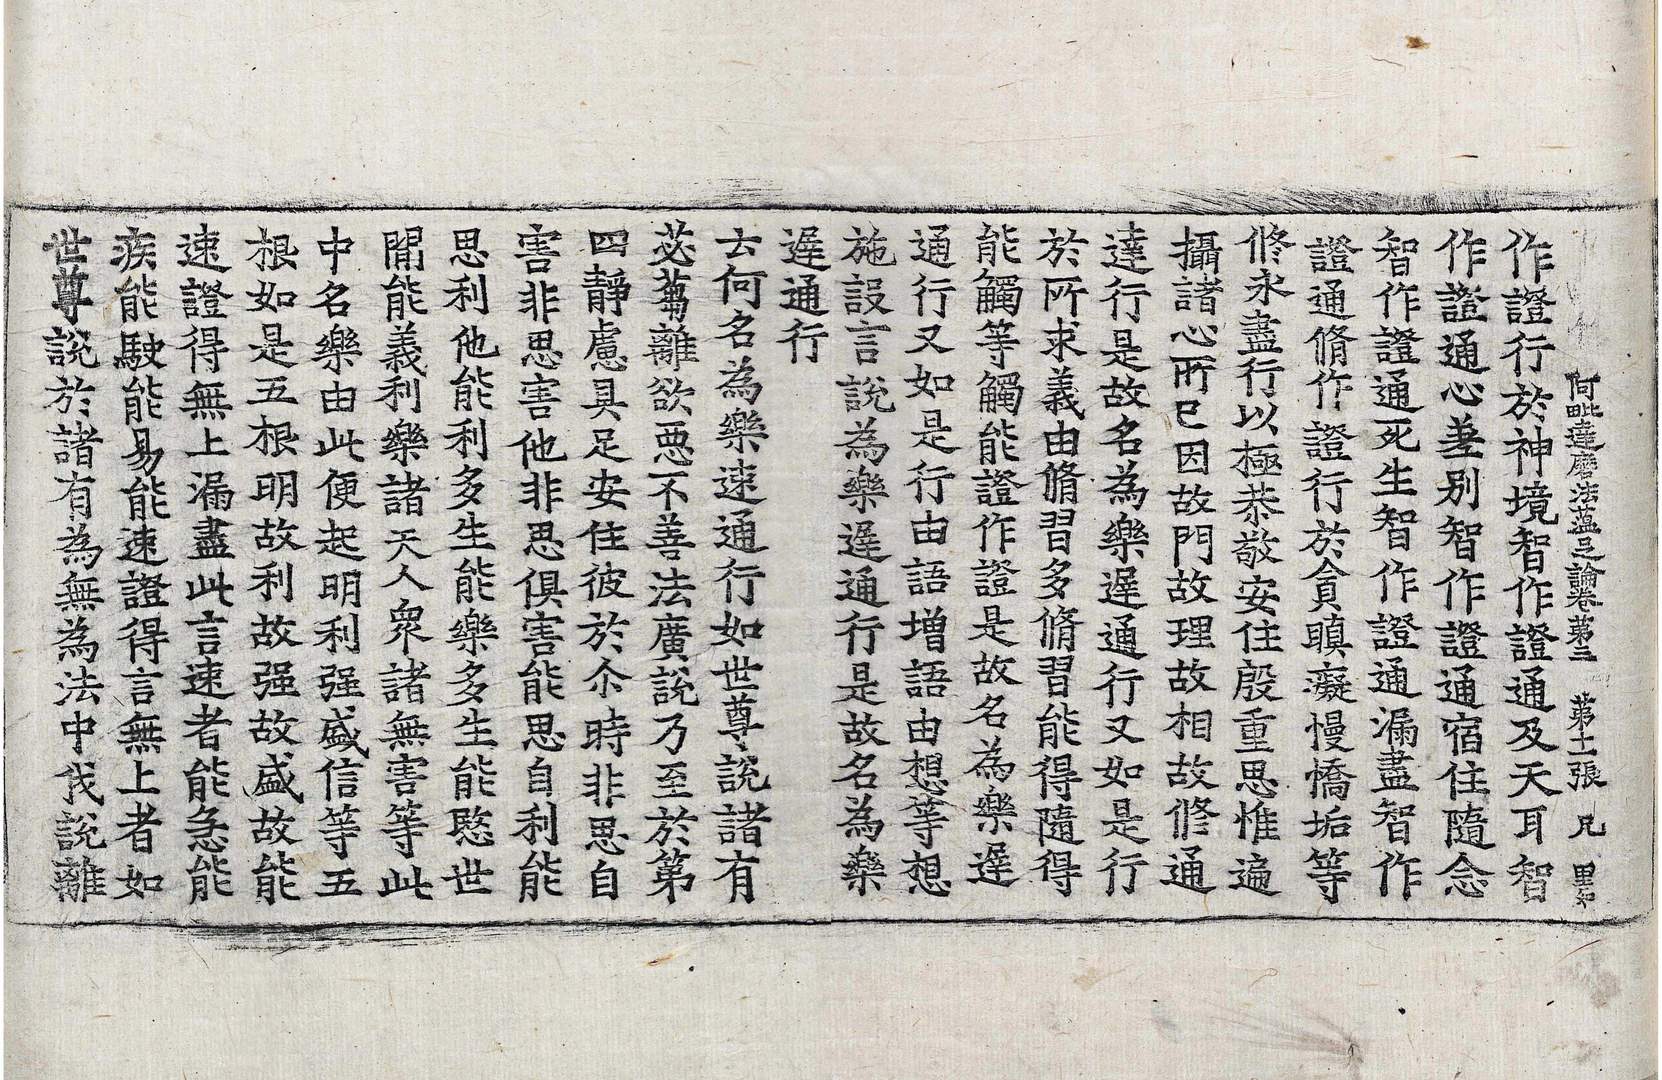 阿毗達磨法蘊足論卷第三　第十一張　凡
作證行於神境智作證通及天耳智
作證通心差別智作證通宿住隨念
智作證通死生智作證通漏盡智作
證通脩作證行於貪瞋癡慢憍垢等
修永盡行以極恭敬安住殷重思惟遍
攝諸心所已因故門故理故相故修通
達行是故名為樂遲通行又如是行
於所求義由脩習多脩習能得隨得
能觸等觸能證作證是故名為樂遲
通行又如是行由語增語由想等想
施設言說為樂遲通行是故名為樂
遲通行
云何名為樂速通行如世尊說諸有
苾蒭離欲惡不善法廣說乃至於第
四靜慮具足安住彼於尒時非思自
害非思害他非思俱害能思自利能
思利他能利多生能樂多生能愍世
閒能義利樂諸天人衆諸無害等此
中名樂由此便起明利强盛信等五
根如是五根明故利故强故盛故能
速證得無上漏盡此言速者能急能
疾能駛能易能速證得言無上者如
世尊說於諸有為無為法中我說離